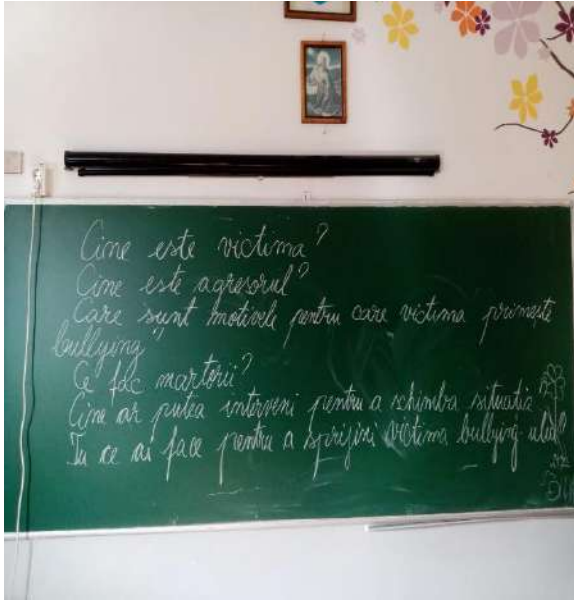 Cine este victima?
Cine este agresorul?
Care sunt motivele pentru care victima primește
bullying?
Ce fac martorii?
Cine ar putea interveni pentru a schimba situatia?
Tu ce ai face pentru a sprijini victima bullying-ului?